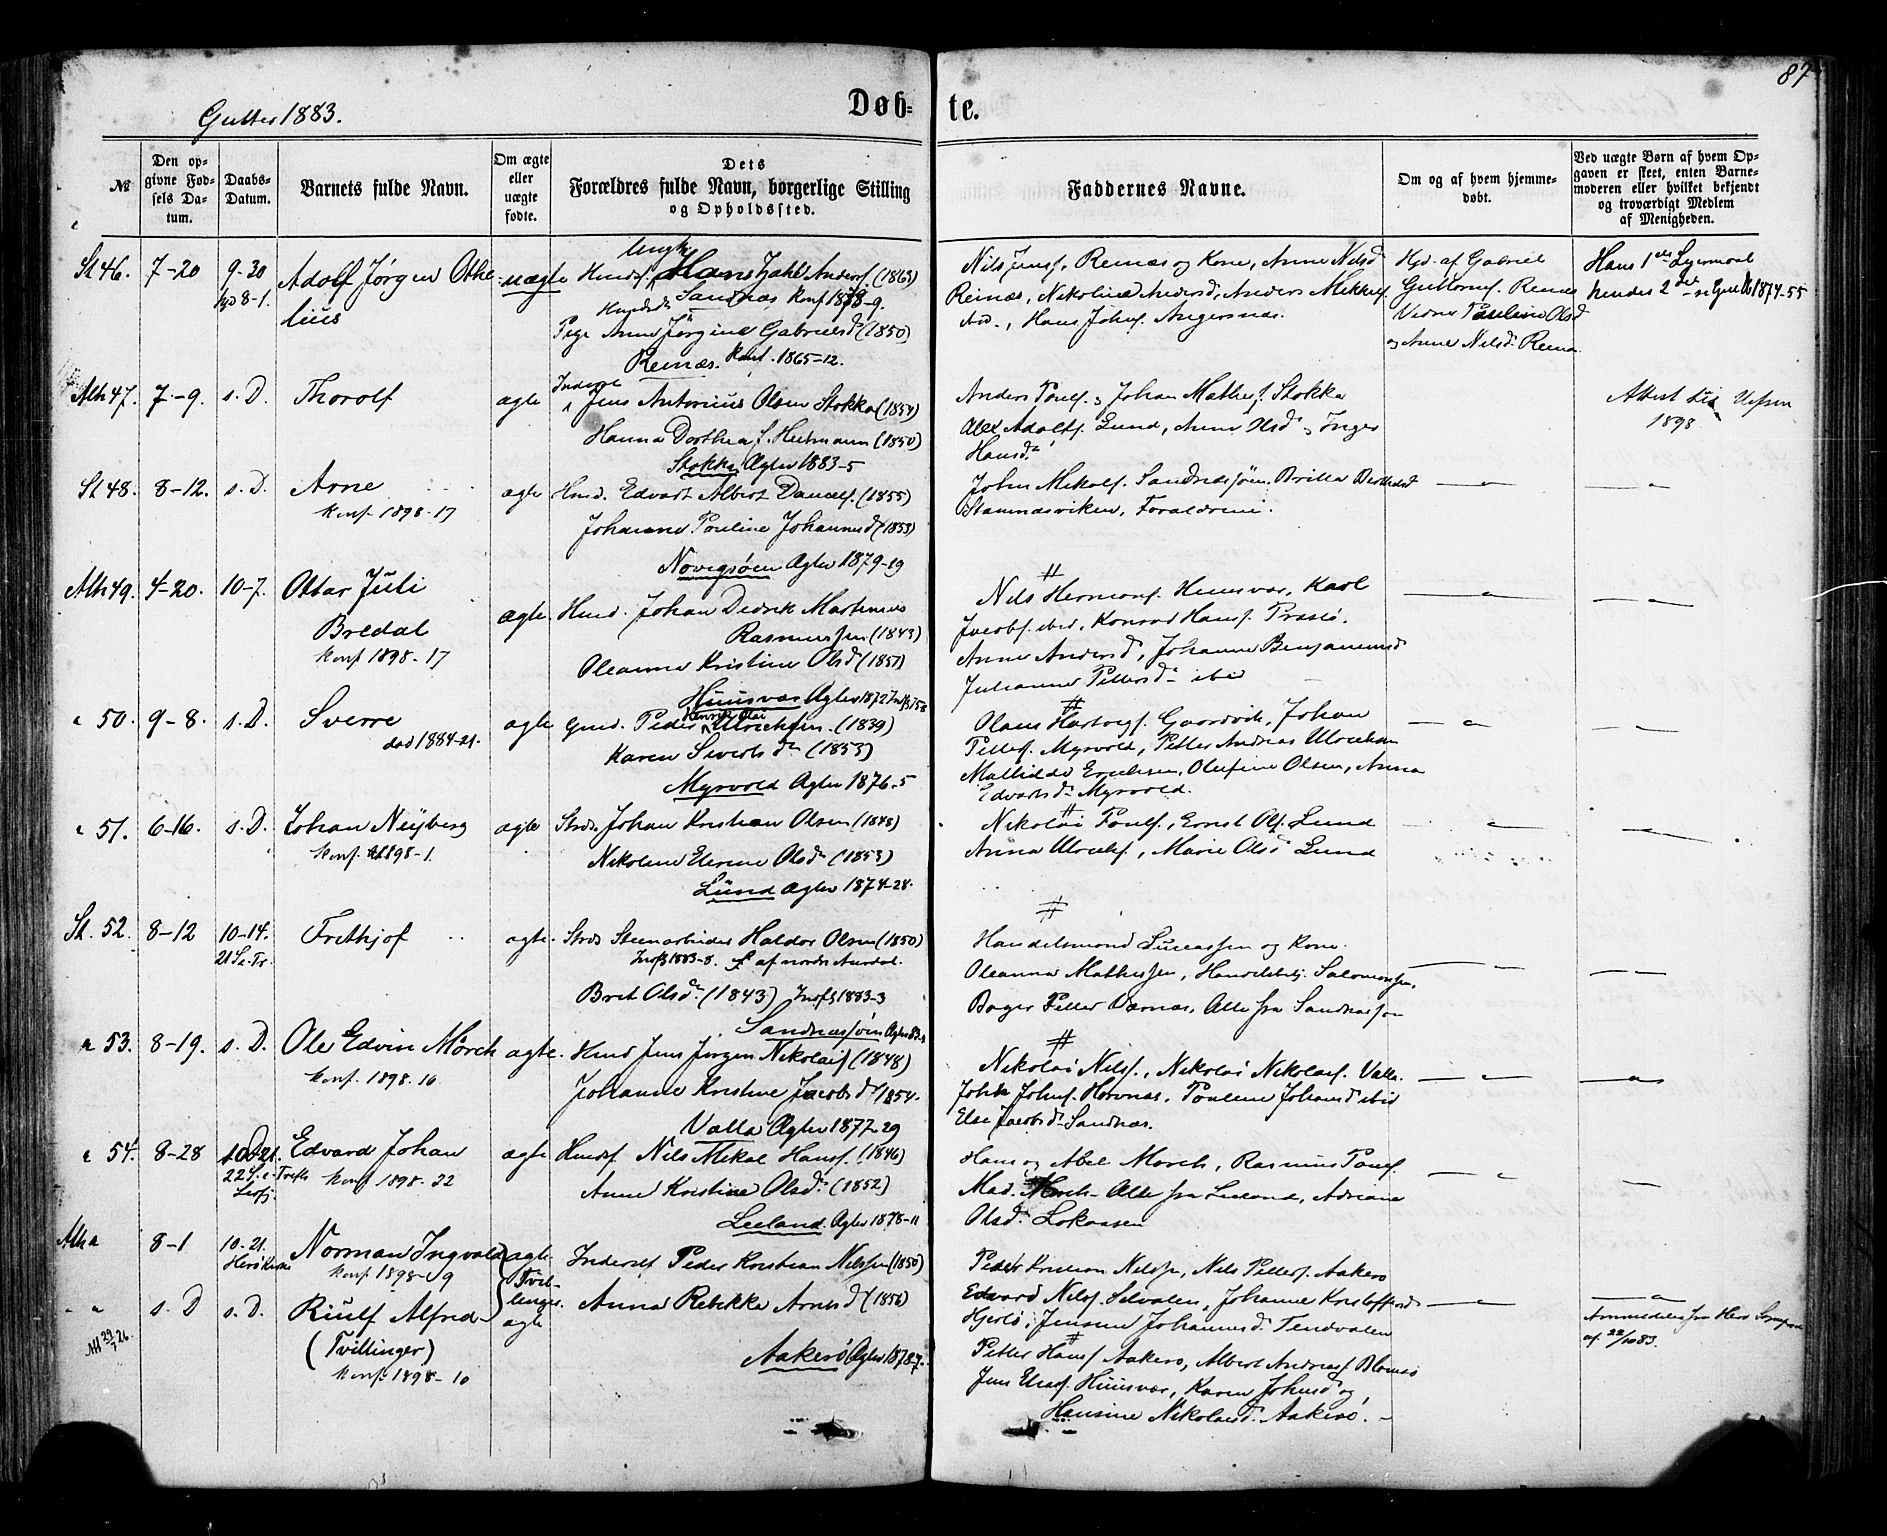 87
Gutter 1883.
Døb=
te.
№
Den op=
givne Fød=
sels Da=
tum.
Daabs=
Datum.
Barnets fulde Navn.
Om ægte
eller
uægte
fødte.
Dets
Forældres fulde Navn, borgerlige Stilling
og Opholdssted.
Faddernes Navne.
Om og af hvem hjemme=
døbt.
Ved uægte Børn af hvem Op=
gaven er skeet, enten Barne=
moderen eller hvilket bekjendt
og troværdigt Medlem
af Menigheden.
St 46. 7-20 9-30 Adolf Jørgen Othe
lius
hjd 8-1.
uægte
Ungk
Hans Zahl Anders. (1863)
Sandnæs Konf 1878-9.
Pige Anne Jørgine Gabrielsd. (1850)
Reinæs. Konf. 1865-12.
Nils Jensf. Reinæs og Kone, Anne Nilsd
Reinæs, Nikoline Andersd, Anders Mikkelf.
ibd., Hans Johnf. Angersnæs.
Hjd. af Gabriel
Guttormf. Reinæs
Vidner Pauline Olsd
og Anne Nilsd. Reinæs
Hans 1ste Leiermaal
hendes 2det 1874-55
Alh 47. 7-9. s. D. Thorolf
ægte
Inderst
Jens Antonius Olsen Stokka (1854)
Hanna Dorthea f. Heitmann (1850)
Stokka Ægtev 1883-5
Anders Poulf., Johan Mathisf. Stokka
Alex Adolff. Lund, Anne Olsd, Inger
Hansd.
Attest til Vefsen
1898
St 48. 8-12. s. D. Arne
Konf. 1898-17
ægte
Hmd. Edvart Albert Danielf. (1855)
Johanne Pouline Johannesd (1853)
Novigsøen Ægtev 1879-19
John Mikalf. Sandnæssjøen. Britta Bertheasd
Stamnæsviken, Forældrene.
Alh 49. 4-20. 10-7. Ottar Juli
Bredal
Konf 1898-17
ægte.
Hmd. Johan Didrik Martinus
Rasmussen (1843)
Oleanna Kristine Olsd (1851)
Huusvær Ægtev 1872
Nils Hermanf. Huusvær, Karl
Jacobf. ibid, Konrad Hansf. Præstø.
Anne Andersd, Johanne Benjaminsd
Julianne Pettersd ibid
" 50. 9-8. s. D. Sverre
død 1884-21.
ægte
Gmd. Peder Henrik Olai Ulrichsen. (1839)
Karen Sivertsd (1853)
Myrvold Ægtev 1876-5
Olaus Hartvigf. Gaardvik, Johan
Petterf. Myrvold, Petter Andreas Ulrichsen
Mathilde Erichsen, Olufine Olsen, Anna
Edvartsd. Myrvold.
" 51. 6-16. s. D. Johan Nyberg
Konf. 1898-1.
ægte
Strds. Johan Kristian Olsen (1848)
Nikoline Elerine Olsd. (1853)
Lund Ægtev 1874-28.
Nikolai Poulf., Ernst Olf. Lund
Anna Ulrichsf., Marie Olsd Lund
St. 52. 8-12 10-14.
21 S. e. Tr.
Frithjof
ægte.
Strds Steenarbeider Haldor Olsen (1850)
Indfl 1883-8. f. af nordre Aurdal.
Brit Olsd. (1843) Indfl 1883-3
Sandnæssjøen Ægtev
Handelsmand Lucassen og Kone.
Oleanna Mathissen, Handelsbetj. Salomonsen,
Bager Petter Værnæs, Alle fra Sandnæssjøen
" 53. 8-19. s. D. Ole Edvin Mørch
Konf. 1898-16
ægte.
Hmd Jens Jørgen Nikolaif (1848)
Johanne Kristine Jacobsd 1854.
Valla Ægtev 1877-29
Nikolai Nilsf., Nikolai Nikolaif. Valla.
John Johnf. Hovnæs, Pouline Johansd ibid
Else Jacobsd. Sandnæs.
" 54. 8-28 10-21.
22 S. e. Tref.
Edvard Johan
Konf 1898-22
ægte
Hmdsf. Nils Mikal Hansf. (1846)
Anne Kristine Olsd. (1852)
Leeland. Ægtev 1878-11
Hans og Abel Mørch, Rasmus Poulf.
Mad. Mørch - Alle fra Leeland, Adriane
Olsd. Lokassen
Alh " 8-1 10-21.
Herø Kirke
Norman Ingvald
Konf 1898-19
ægte
Tvil-
linger.
Inderst Peder Kristian Nilssen (1850)
Anna Rebekka Arnesd (1856)
Aakerø Ægtev 1878-7.
Peder Kristian Nilsen, Nils Petterf. Aakerø
Edvard Nilsf. Selvalen, Johanne Kristoffersd
Hjertø, Jensine Johannesd. Tendvalen
" " s. D s. D. Riulf Alfred
(Tvillinger)
Konf. 1898-10
ægte
Petter Hansf Aakerø, Albert Andreasf Blomsø
Jens Eliasf. Huusvær, Karen Johnsd og
Hansine Nikolaisd. Aakerø.
Anmeldelse fra Herø Sogneprest
af 22/10 83.